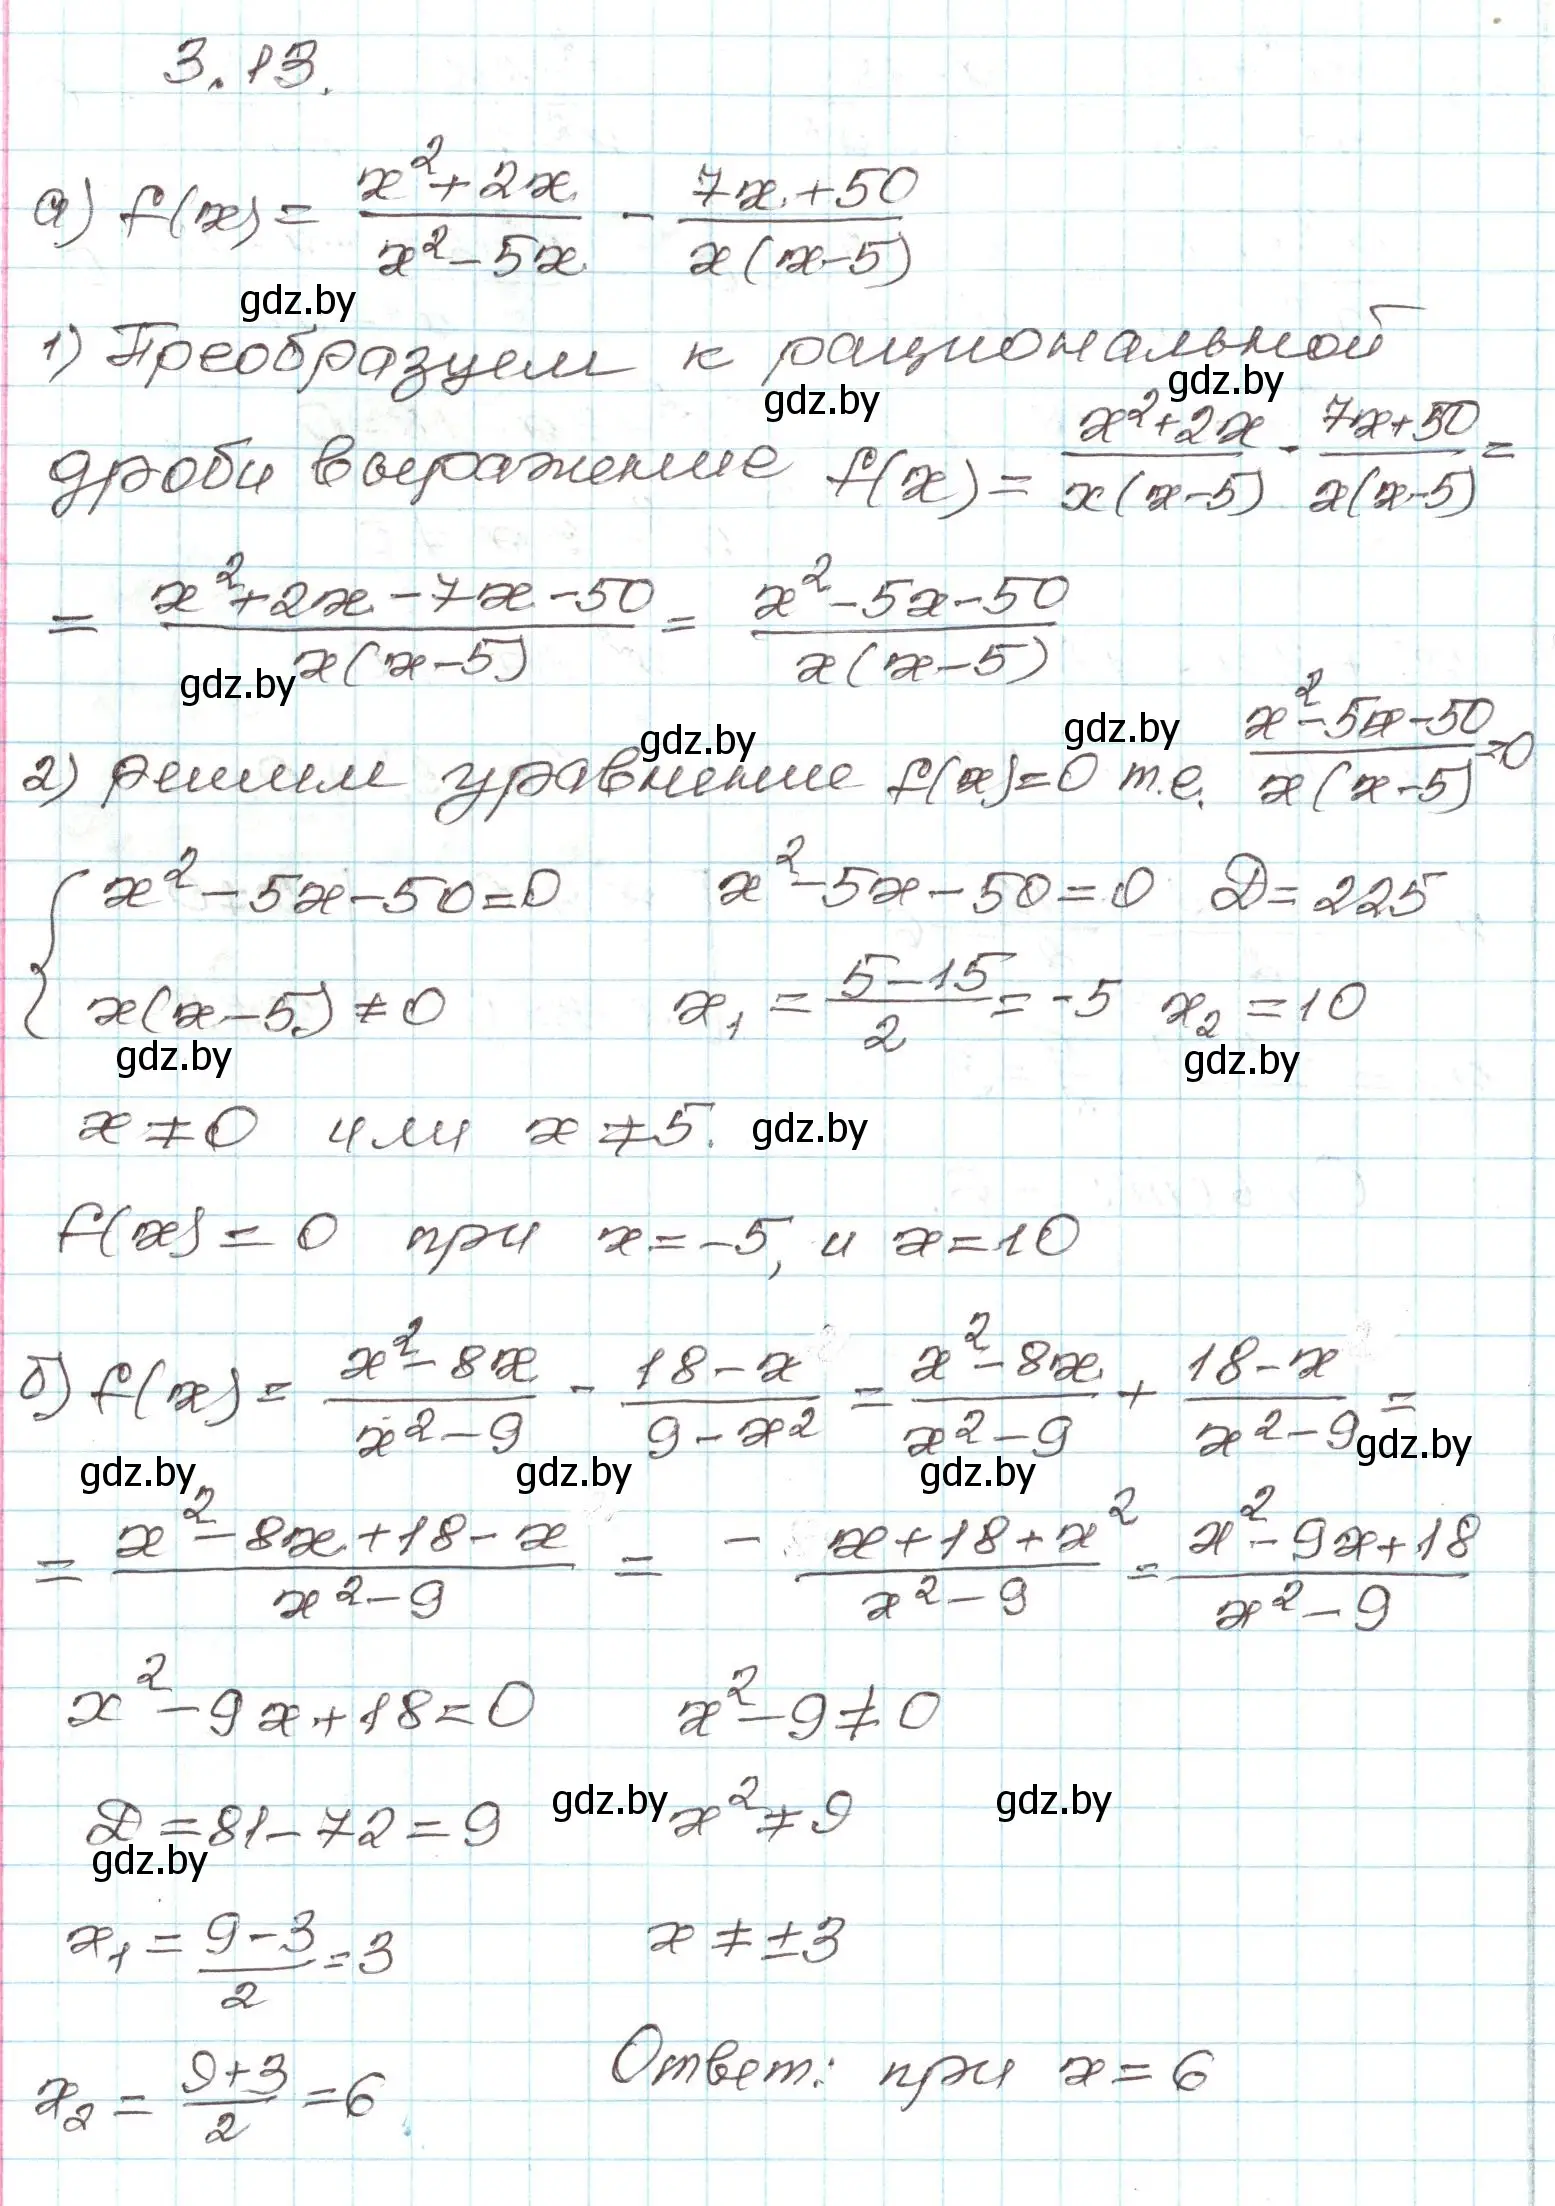 3.13.
а) f(x) = (x² + 2x)/(x² - 5x) - (7x + 50)/(x(x - 5))
gdz.by
1) Преобразуем к рациональной
gdz.by gdz.by
дроби выражение f(x) = (x² + 2x)/(x(x - 5)) - (7x + 50)/(x(x - 5)) =
= (x² + 2x - 7x - 50)/(x(x - 5)) = (x² - 5x - 50)/(x(x - 5))
gdz.by
gdz.by gdz.by
2) решим уравнение f(x) = 0 т.е. (x² - 5x - 50)/(x(x - 5)) = 0
{ x² - 5x - 50 = 0 x² - 5x - 50 = 0 D = 225
x(x - 5) ≠ 0 x₁ = (5 - 15)/2 = -5 x₂ = 10
gdz.by gdz.by
x ≠ 0 или x ≠ 5. gdz.by
f(x) = 0 при x = -5, и x = 10
б) f(x) = (x² - 8x)/(x² - 9) - (18 - x)/(9 - x²) = (x² - 8x)/(x² - 9) + (18 - x)/(x² - 9) =
gdz.by gdz.by gdz.by gdz.by
= (x² - 8x + 18 - x)/(x² - 9) = - (x + 18 + x²)/(x² - 9) = (x² - 9x + 18)/(x² - 9)
x² - 9x + 18 = 0 x² - 9 ≠ 0
gdz.by gdz.by
D = 81 - 72 = 9 x² ≠ 9
gdz.by
x₁ = (9 - 3)/2 = 3 x ≠ ±3
x₂ = (9 + 3)/2 = 6 Ответ: при x = 6